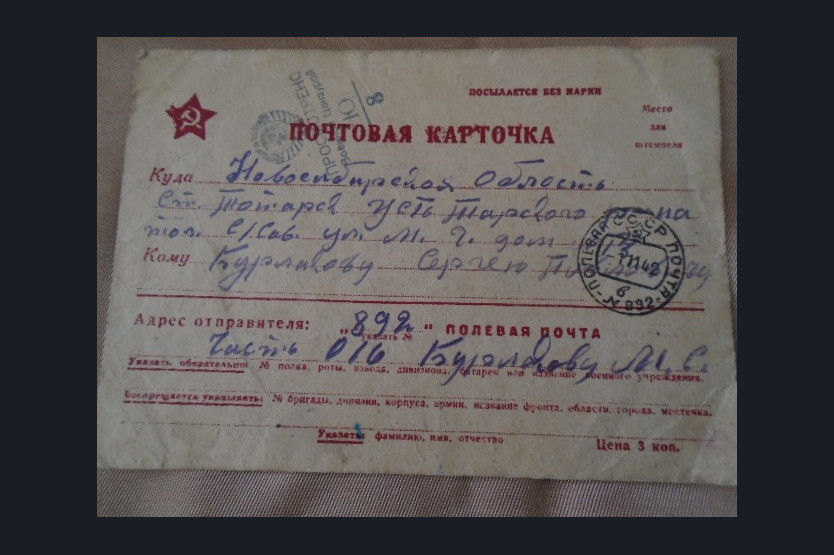 ПОСЫЛАЕТСЯ БЕЗ МАРКИ
Место
для
штемпеля
ПРОСМОТРЕНО
Военной Цензурой
8
ПОЧТОВАЯ КАРТОЧКА
Куда Новосибирская область
ст. Татарск Усть Тарского района
С/Сов. ул. М. Г. дом
Кому Бурлакову Сергею
СССР ПОЛЕВАЯ ПОЧТА
11 42
в
№ 892
Адрес отправителя: „ 892 “ ПОЛЕВАЯ ПОЧТА
указать №
Часть 016 Бурлакову М. С.
Указать обязательно: № полка, роты, взвода, дивизиона, батареи или название военного учреждения.
Воспрещается указывать: № бригады, дивизии, корпуса, армии, название фронта, области, города, местечка.
Указать фамилию, имя, отчество
Цена 3 коп.